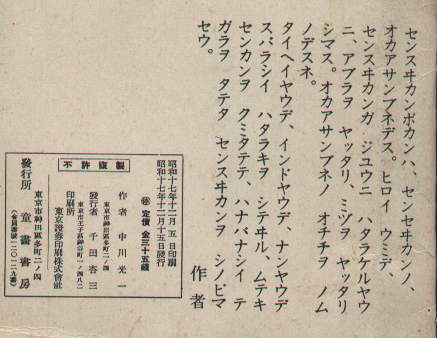 センスヰカンボカンハ、センセヰカンノ、
オカアサンブネデス。ヒロイ ウミデ、
センスヰカンガ ジユウニ ハタラケルヤウ
ニ、アブラヲ ヤツタリ、ミヅヲ ヤツタリ
シマス。オカアサンブネノ オチチヲ ノム
ノデスネ。
タイヘイヤウデ、インドヤウデ、ナンヤウデ
スバラシイ ハタラキヲ シテヰル、ムテキ
センカンヲ クミタテテ、ハナバナシイ テ
ガラヲ タテタ センスヰカンヲ シノビマ
セウ。
作者
不許複製
昭和十七年十二月五日印刷
昭和十七年十二月十五日發行
定價 金三十五錢
作者 中川光一
東京市神田區多町二ノ四
發行者 千田杏三
東京市王子區神谷町一ノ四八二
印刷所 東京證券印刷株式會社
東京市神田區多町二ノ四
發行所 童畫書房
(會員番號一二〇二一九番)